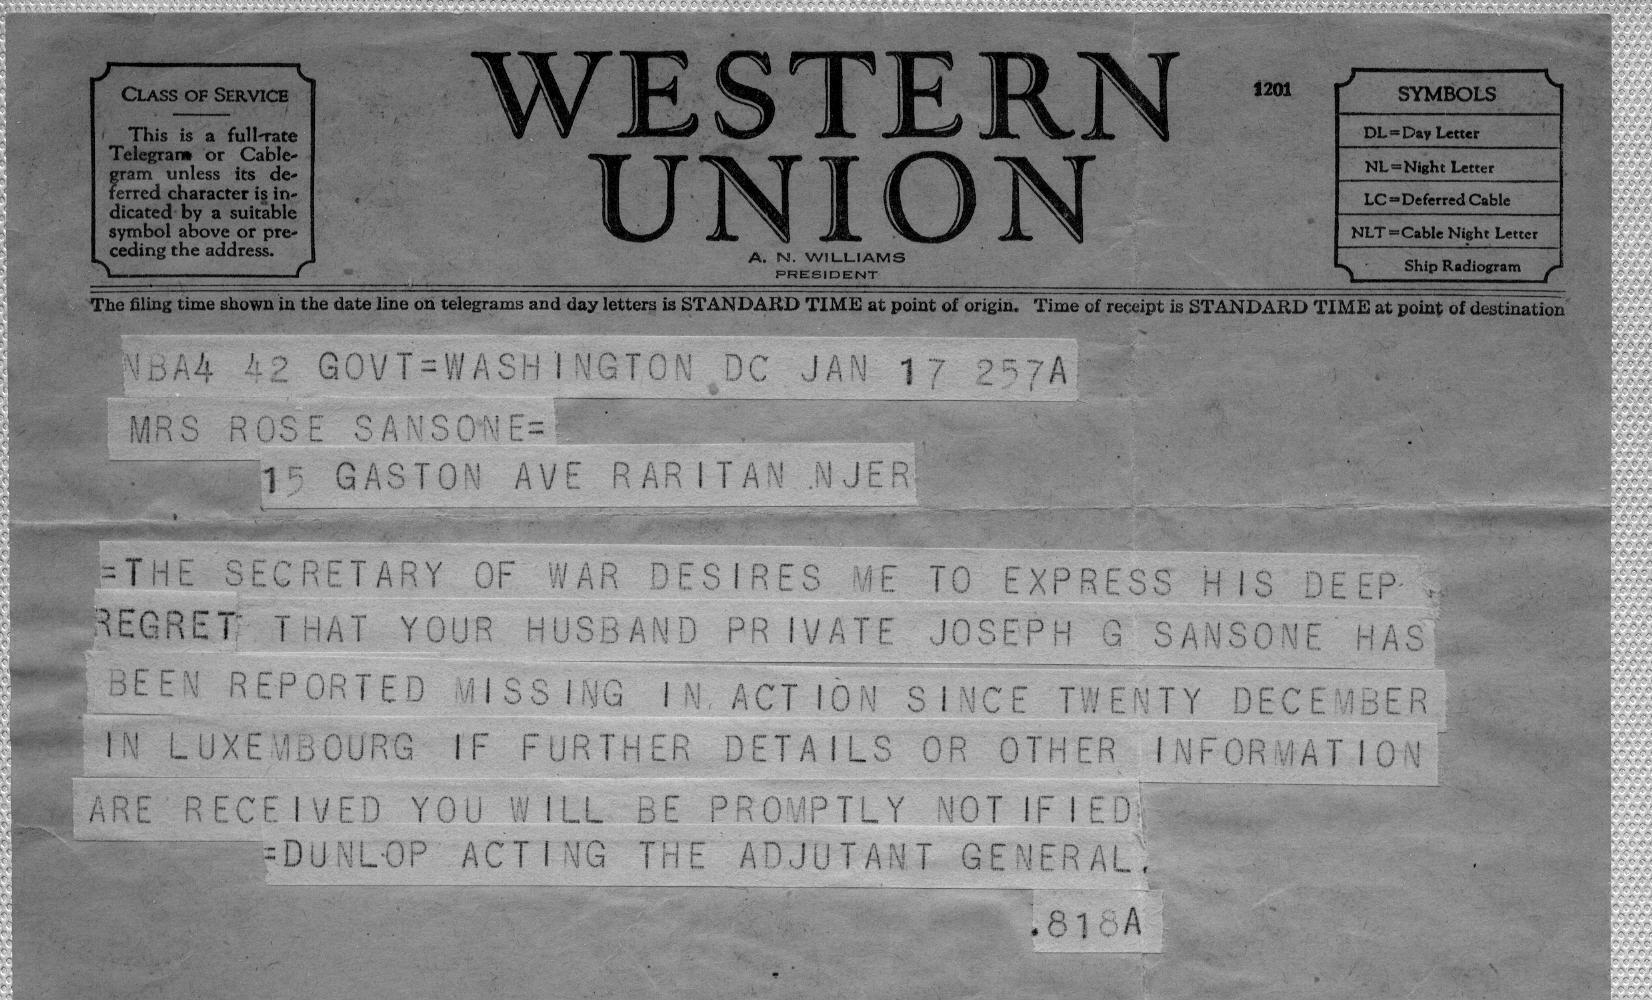 WESTERN
UNION
1201
A. N. WILLIAMS
PRESIDENT
CLASS OF SERVICE
This is a full-rate
Telegram or Cable-
gram unless its de-
ferred character is in-
dicated by a suitable
symbol above or pre-
ceding the address.
SYMBOLS
DL=Day Letter
NL=Night Letter
LC=Deferred Cable
NLT=Cable Night Letter
Ship Radiogram
The filing time shown in the date line on telegrams and day letters is STANDARD TIME at point of origin. Time of receipt is STANDARD TIME at point of destination
NBA4 42 GOVT=WASHINGTON DC JAN 17 257A
MRS ROSE SANSONE=
15 GASTON AVE RARITAN NJER
=THE SECRETARY OF WAR DESIRES ME TO EXPRESS HIS DEEP
REGRET THAT YOUR HUSBAND PRIVATE JOSEPH G SANSONE HAS
BEEN REPORTED MISSING IN ACTION SINCE TWENTY DECEMBER
IN LUXEMBOURG IF FURTHER DETAILS OR OTHER INFORMATION
ARE RECEIVED YOU WILL BE PROMPTLY NOTIFIED
=DUNLOP ACTING THE ADJUTANT GENERAL.
.818A